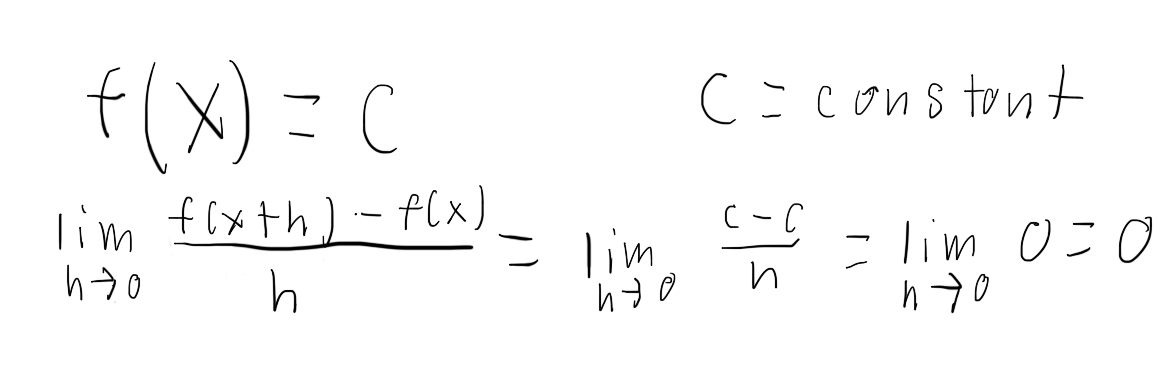 f(x) = C    C = constant
lim h→0 (f(x+h) - f(x))/h = lim h→0 (c-c)/h = lim h→0 0 = 0